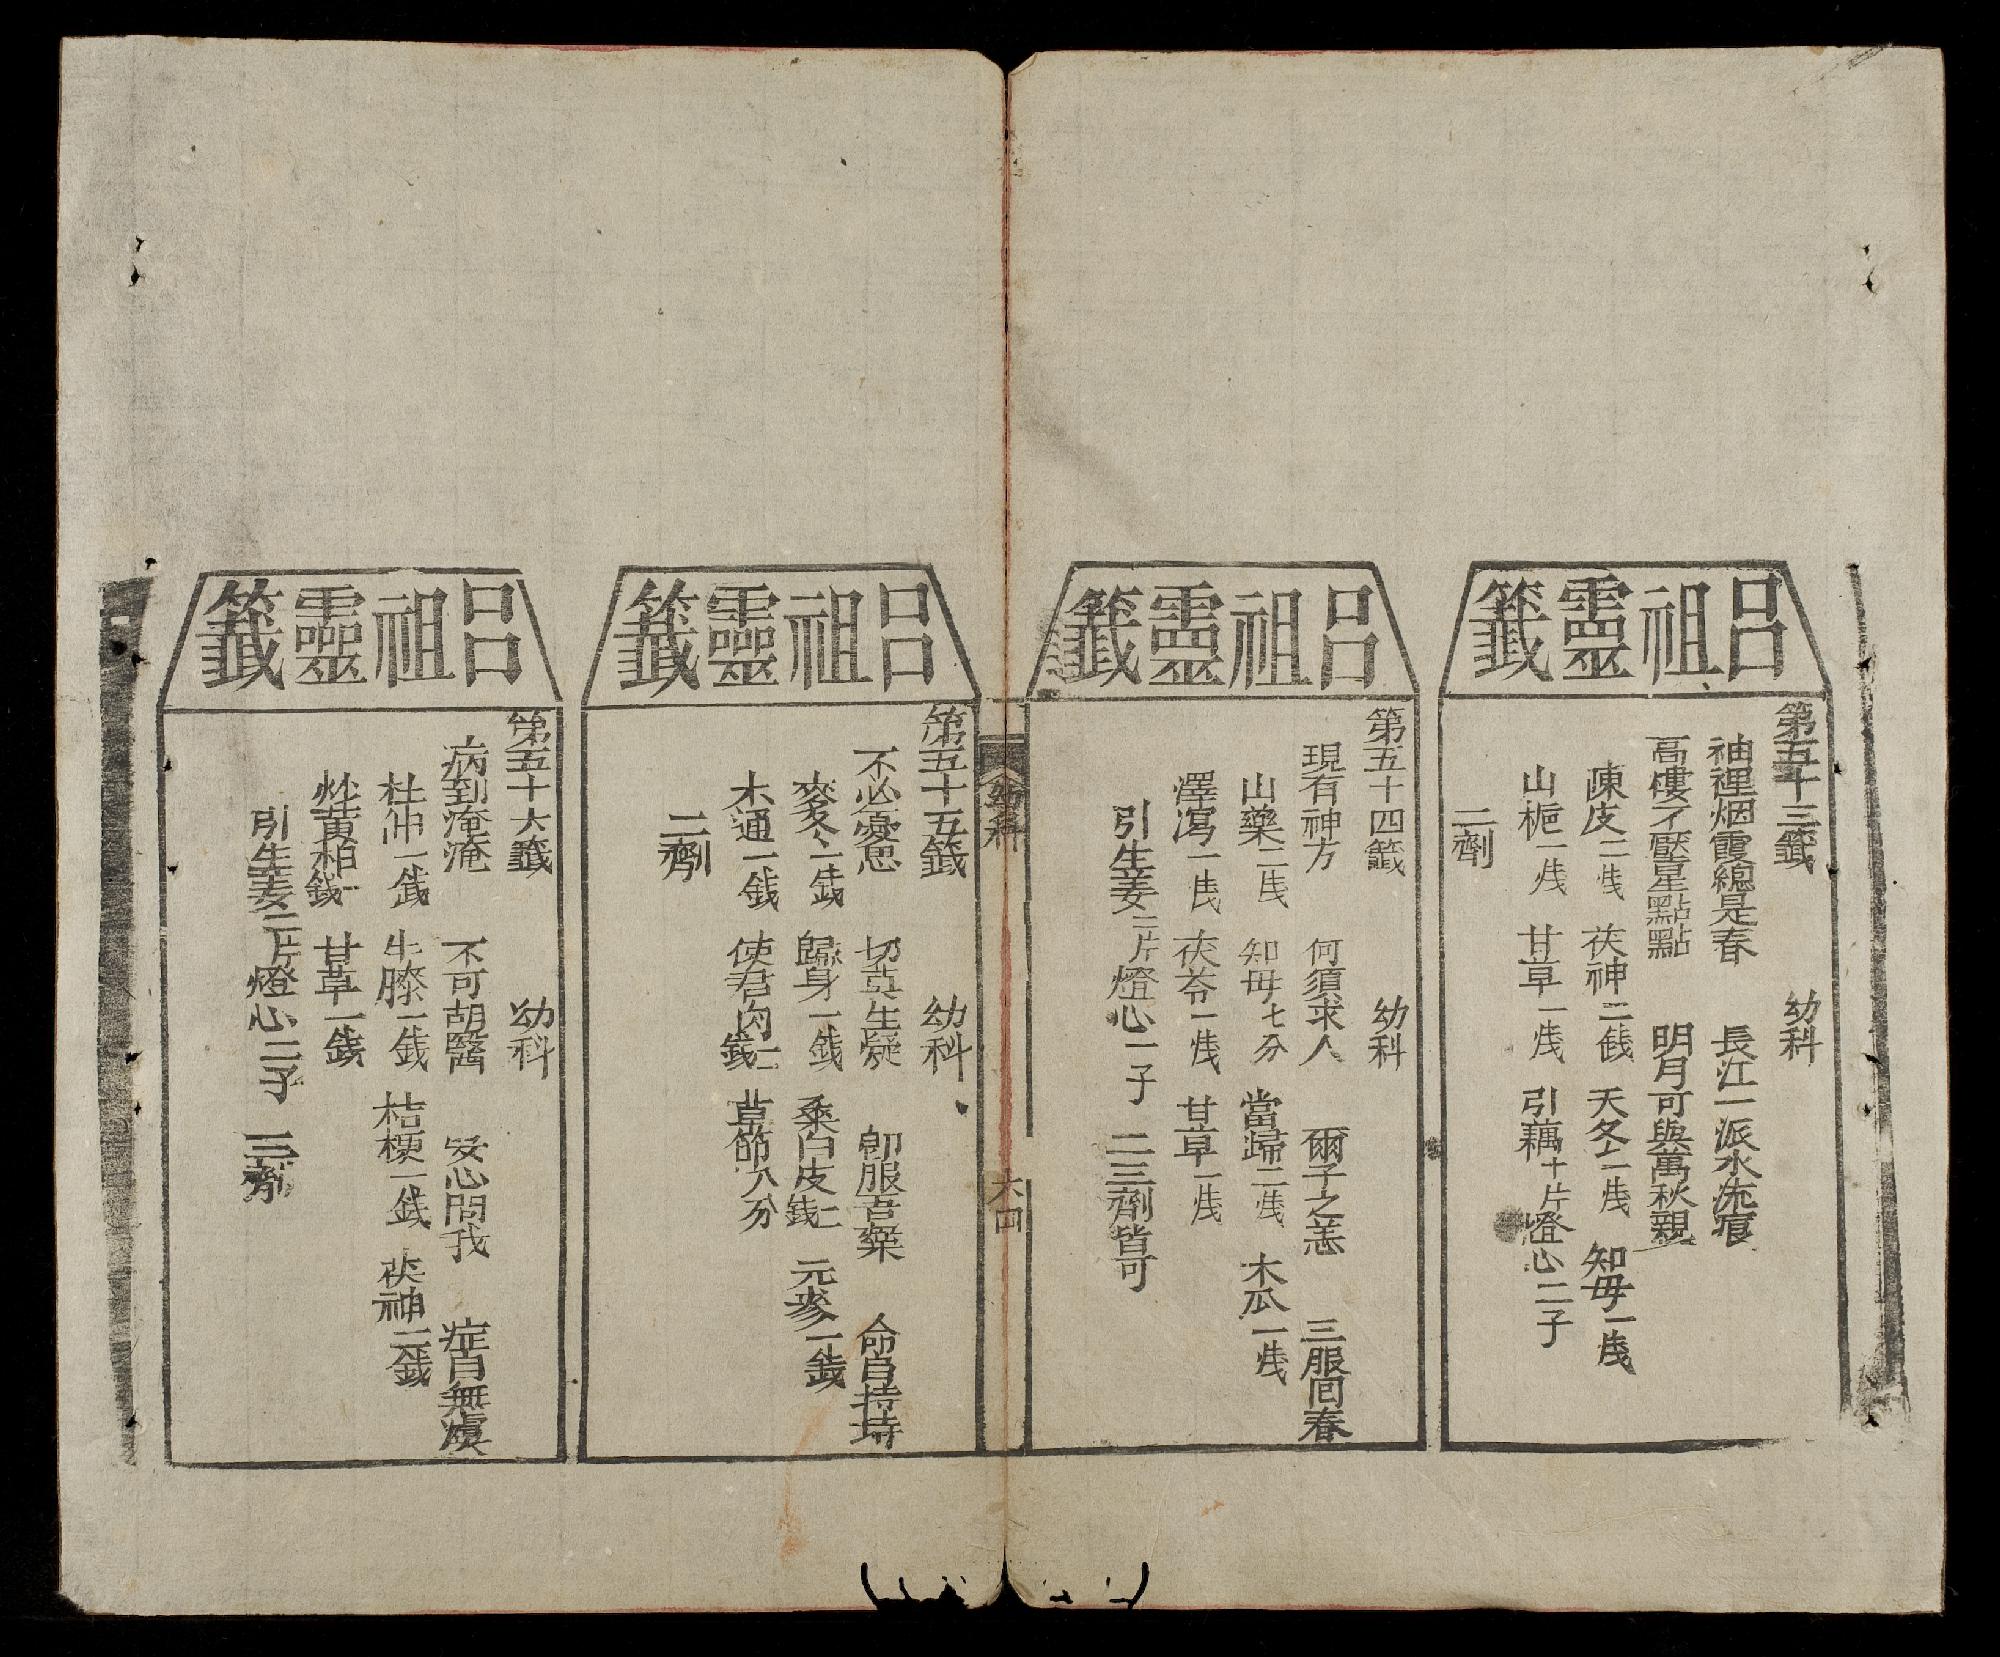 呂祖靈籤
第五十三籤 幼科
袖裡烟霞總是春 長江一派水流痕
高樓不厭星點點 明月可與萬秋親
陳皮二錢 茯神二錢 天冬一錢 知母一錢
山梔一錢 甘草一錢 引藕十片燈心二子
二劑
呂祖靈籤
第五十四籤 幼科
現有神方 何須求人 爾子之恙 三服回春
山藥二錢 知母七分 當歸二錢 木瓜一錢
澤瀉一錢 茯苓一錢 甘草一錢
引生姜二片燈心一子 二三劑皆可
幼科 六四
呂祖靈籤
第五十五籤 幼科
不必憂思 切莫生疑 卽服吾藥 命自持持
麥冬二錢 歸身一錢 桑白皮二錢 元參一錢
木通一錢 使君肉二錢 草節八分
二劑
呂祖靈籤
第五十六籤 幼科
病到淹淹 不可胡醫 安心問我 症自無虞
杜仲一錢 牛膝一錢 桔梗一錢 茯神二錢
炒黃柏一錢 甘草一錢
引生姜二片燈心二子 三劑